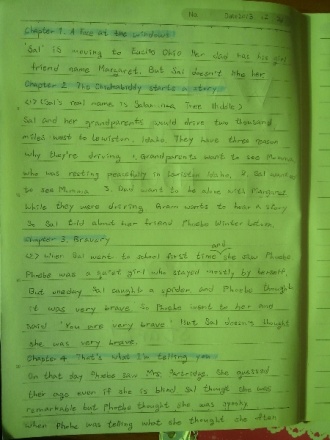 No.
Chapter 1. A face at the window
'Sal' is moving to Euclid Ohio Her dad has his girl
friend name Margaret. But Sal doesn't like her
Chapter 2 The Chickabiddy starts a story
<> (Sal's real name is Salamanca Tree Hiddle)
Sal and her grandparents would drive two thousand
miles west to Lewiston, Idaho. They have three reason
why they're driving 1. Grandparents want to see Momma,
who was resting peacefully in Lewiston Idaho, 2. Sal want
to see Momma 3. Dad want to be alone with Margaret
While they were driving Gram wants to hear a story
So Sal told about her friend Phoebe Winterbottom.
Chapter 3. Bravery
and
<> when Sal went to school first time she saw Phoebe
Phoebe was a quiet girl who stayed mostly by herself.
But oneday Sal caught a spider and Phoebe thought
it was very brave So Phoebe went to her and
said "You are very brave" But Sal doesn't thought
she was very brave.
Chapter 4 That's what I'm telling you
On that day Phoebe saw Mrs. Partridge. She guessed
their age even if she is blind Sal thought she was
remarkable but Phoebe thought she was spooky
When Phoebe was telling what she thought she often